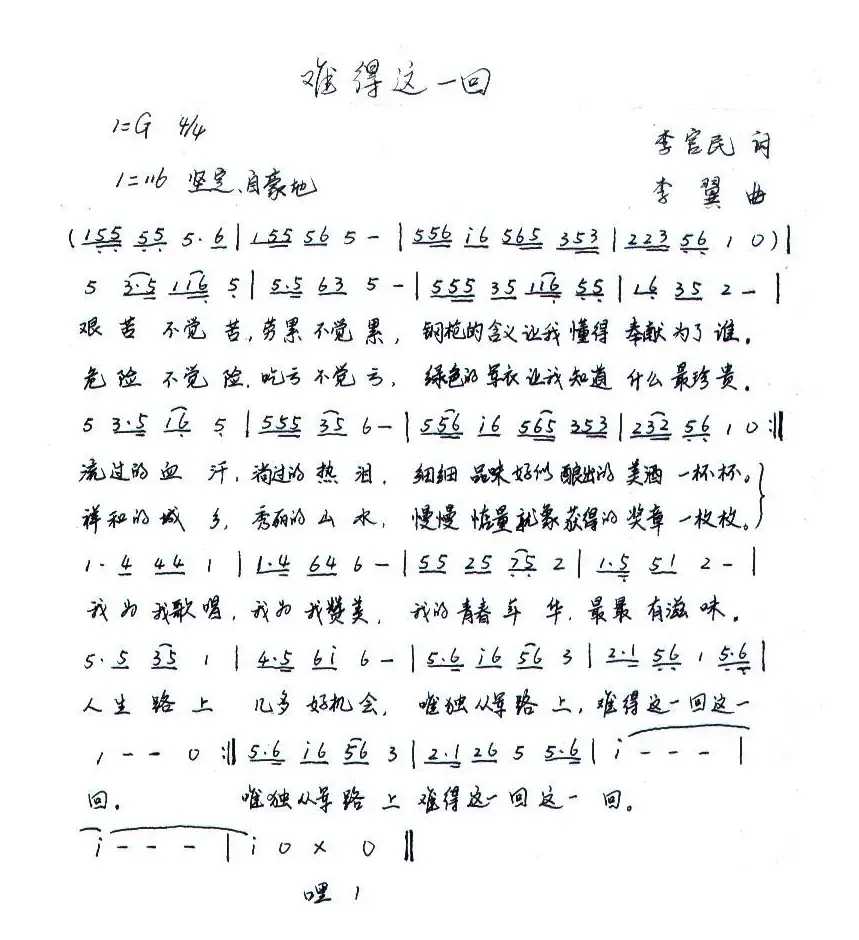 难得这一回
1=G 4/4
李官民 词
1=116 坚定、自豪地
李翼 曲
(155 55 5·6 | 155 56 5 - | 556 i6 565 353 | 223 56 1 0) |
5 3·5 116 5 | 5·5 63 5 - | 555 35 116 55 | 16 35 2 - |
艰苦不觉苦,劳累不觉累,钢枪的含义让我懂得奉献为了谁。
危险不觉险,吃亏不觉亏,绿色的军衣让我知道什么最珍贵。
5 3·5 16 5 | 555 35 6 - | 556 i6 565 353 | 232 56 1 0 :||
流过的血汗,淌过的热泪,细细品味好似酿出的美酒一杯杯。
祥和的城乡,秀丽的山水,慢慢掂量就象获得的奖章一枚枚。
1· 4 44 1 | 1·4 64 6 - | 55 25 75 2 | 1·5 51 2 - |
我为我歌唱,我为我赞美,我的青春年华,最最有滋味。
5· 5 35 1 | 4·5 6i 6 - | 5·6 i6 56 3 | 2·1 56 1 5·6 |
人生路上几多好机会,唯独从军路上,难得这一回这一
1 - - 0 :|| 5·6 i6 56 3 | 2·1 26 5 5·6 | i - - - |
回。 唯独从军路上难得这一回这一回。
i - - - | i 0 × 0 ||
嘿!